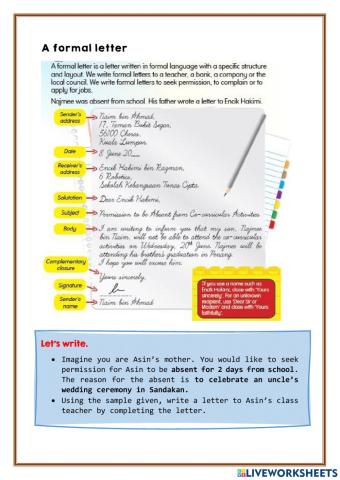 A formal letter
A formal letter is a letter written in formal language with a specific structure
and layout. We write formal letters to a teacher, a bank, a company or the
local council. We write formal letters to seek permission, to complain or to
apply for jobs.
Najmee was absent from school. His father wrote a letter to Encik Hakimi.
Sender's
address
Naim bin Ahmad,
17, Taman Bukit Segar,
56100 Cheras,
Kuala Lumpur.
Date
8 June 20__
Receiver's
address
Encik Hakimi bin Razman,
6 Robotics,
Sekolah Kebangsaan Tunas Cipta.
Salutation
Dear Encik Hakimi,
Subject
Permission to be Absent from Co-curricular Activities
Body
I am writing to inform you that my son, Najmee
bin Naim, will not be able to attend the co-curricular
activities on Wednesday, 20th June. Najmee will be
attending his brother's graduation in Penang.
I hope you will excuse him.
Complementary
closure
Yours sincerely,
Signature
Sender's
name
Naim bin Ahmad
If you use a name such as
Encik Hakimi, close with 'Yours
sincerely'. For an unknown
recipient, use 'Dear Sir or
Madam' and close with 'Yours
faithfully'.
Let's write.
• Imagine you are Asin's mother. You would like to seek
permission for Asin to be absent for 2 days from school.
The reason for the absent is to celebrate an uncle's
wedding ceremony in Sandakan.
• Using the sample given, write a letter to Asin's class
teacher by completing the letter.
LIVEWORKSHEETS